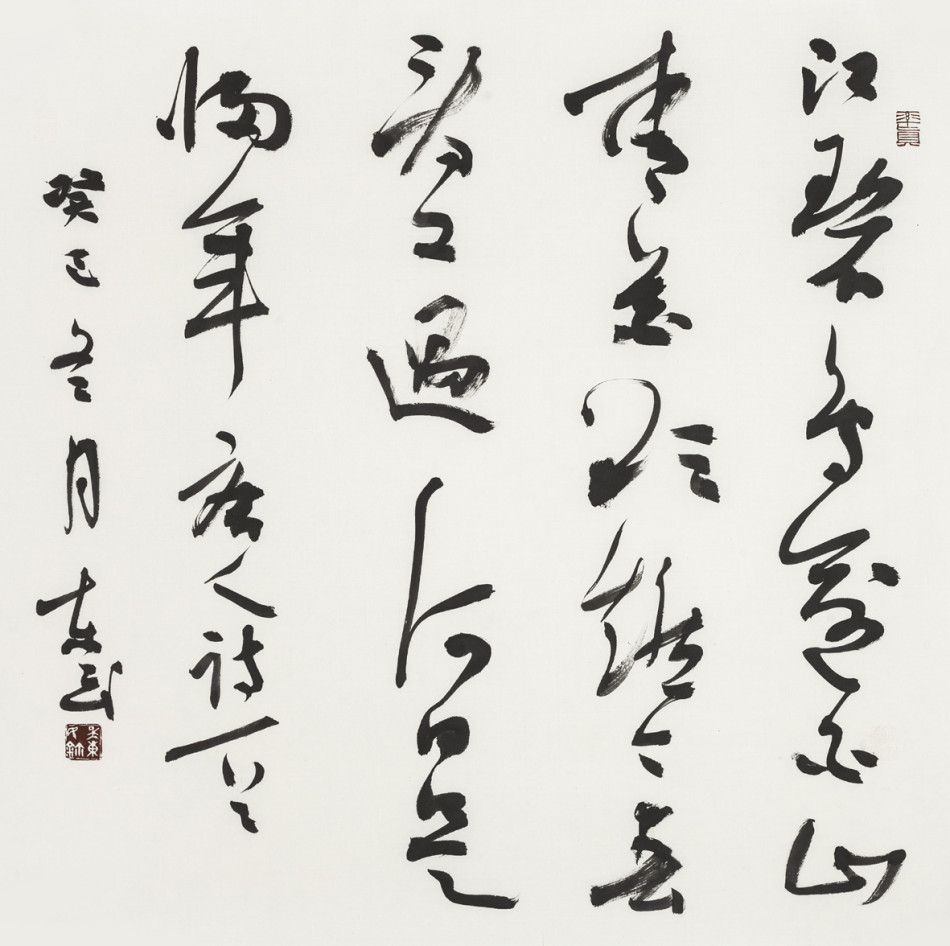 江碧鳥逾白山
青花欲然今春
看又過何日是
歸年 唐人詩一首
癸巳冬月 東民